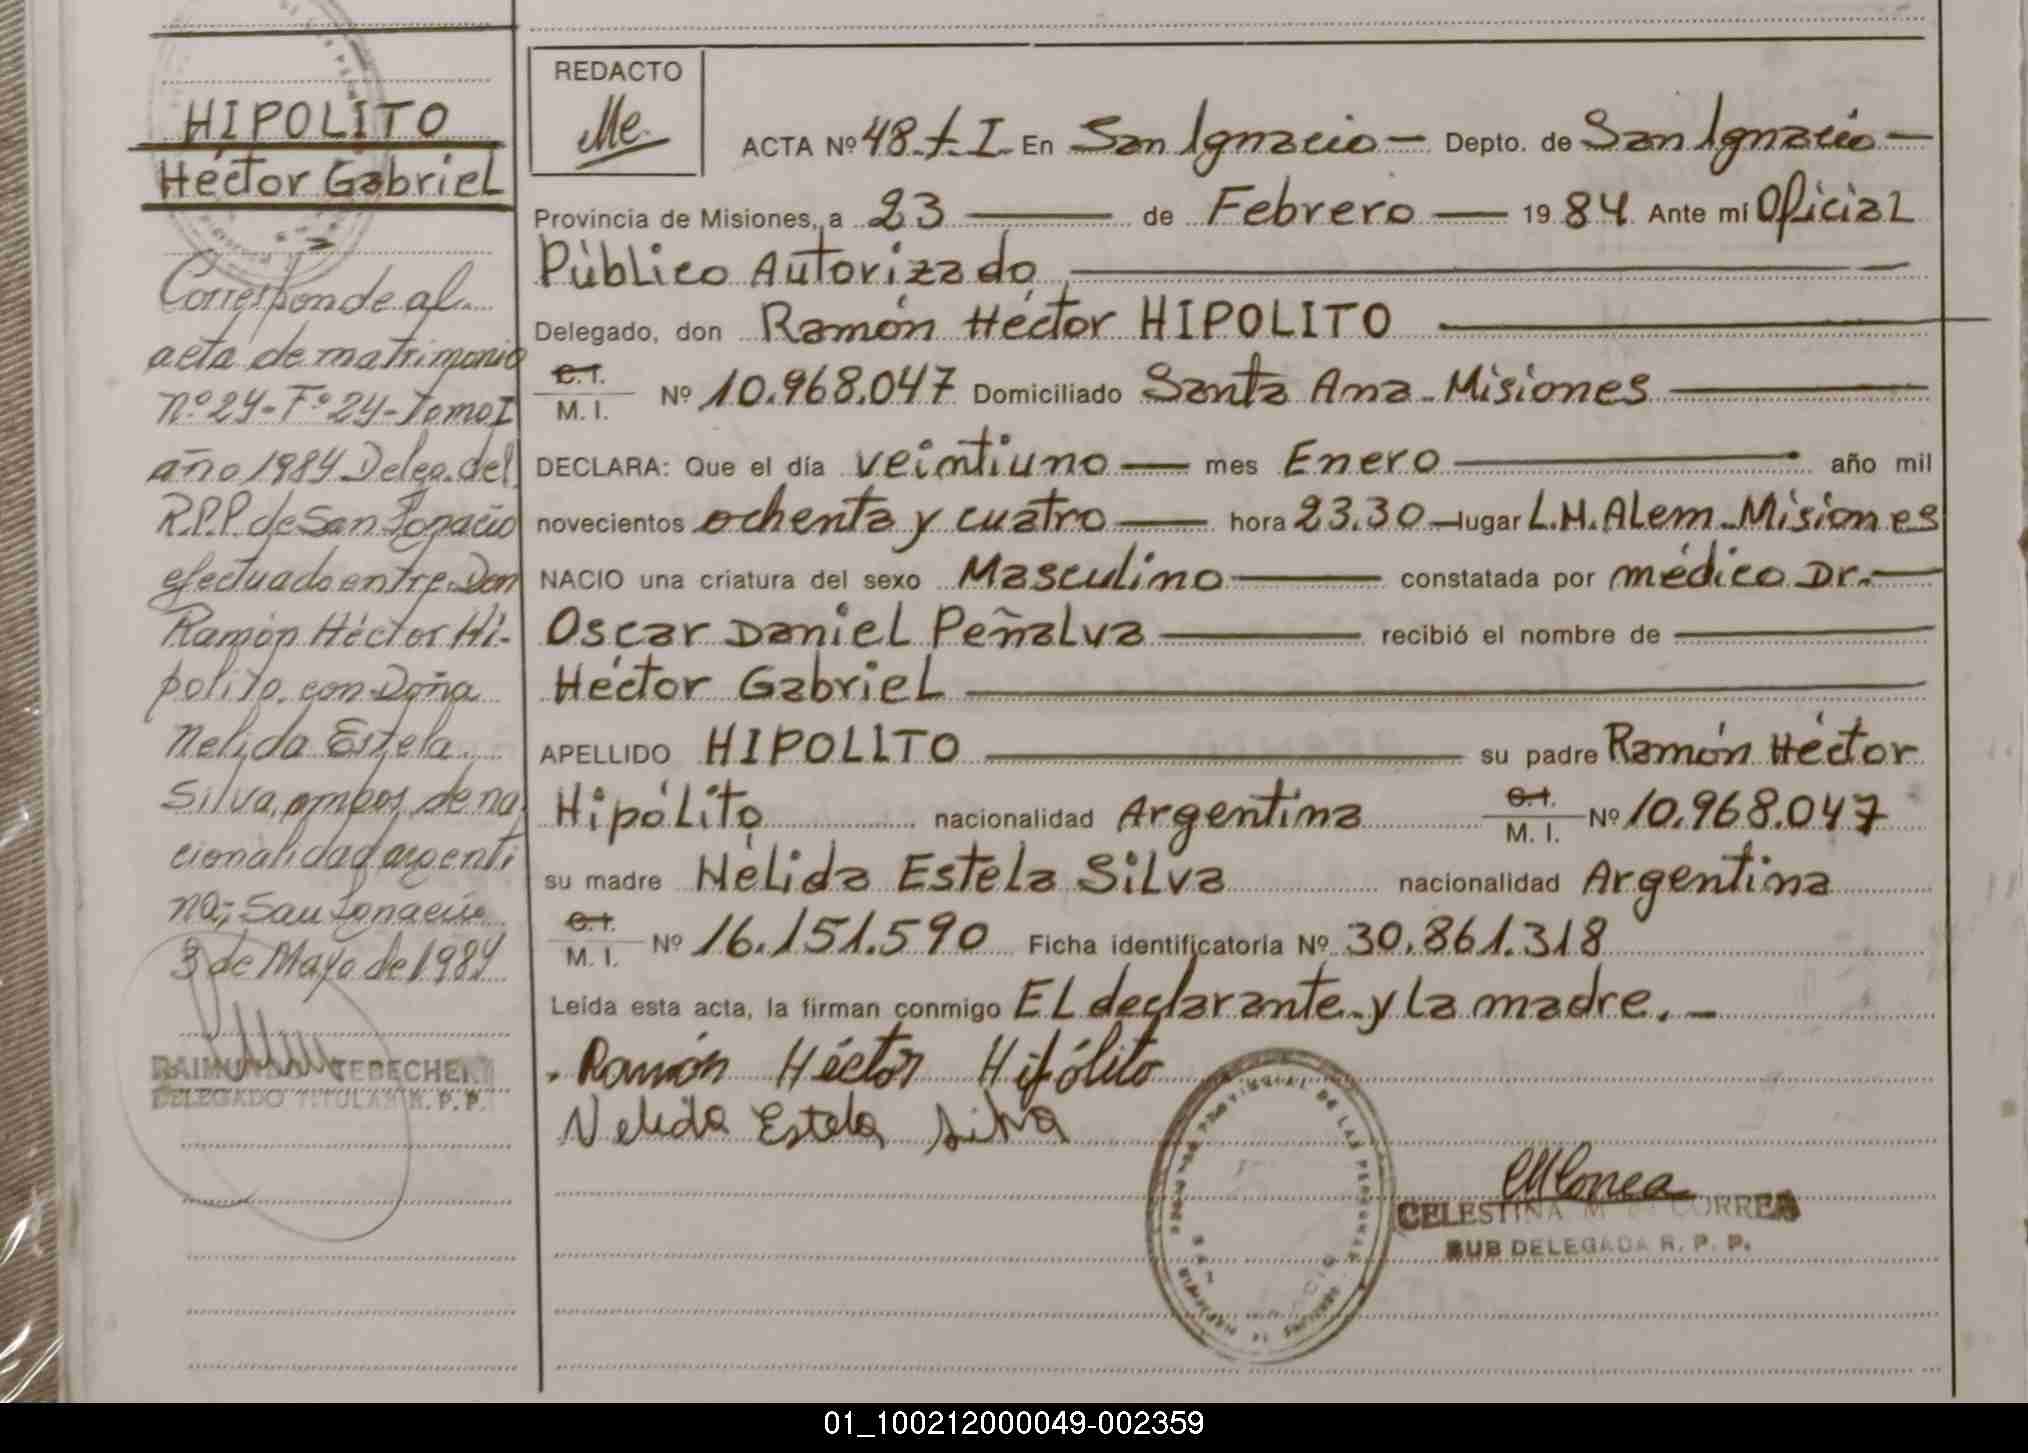 HIPOLITO
Héctor Gabriel
Corresponde al
acta de matrimonio
nº 24-Fº 24-Tomo I
año 1984 Deleg. del
R.P.P. de San Ignacio
efectuado entre Don
Ramón Héctor Hi-
polito con Doña
Nelida Estela
Silva, ambos de na
cionalidad argenti
na; San Ignacio
3 de Mayo de 1984
RAIMUNDO TEBECHERI
DELEGADO TITULAR R. P. P.
REDACTO
ACTA Nº 48.t.I. En San Ignacio — Depto. de San Ignacio —
Provincia de Misiones, a 23 — de Febrero — 1984 Ante mí Oficial
Público Autorizado
Delegado, don Ramón Héctor HIPOLITO
C.I.
M. I. Nº 10.968.047 Domiciliado Santa Ana - Misiones
DECLARA: Que el día veintiuno — mes Enero — año mil
novecientos ochenta y cuatro — hora 23.30 — lugar L.N.Alem - Misiones
NACIO una criatura del sexo Masculino — constatada por médico Dr. —
Oscar Daniel Peñalva — recibió el nombre de —
Héctor Gabriel
APELLIDO HIPOLITO — su padre Ramón Héctor
Hipólito nacionalidad Argentina C.I.
M. I. Nº 10.968.047
su madre Nélida Estela Silva nacionalidad Argentina
C.I.
M. I. Nº 16.151.590 Ficha identificatoria Nº 30.861.318
Leída esta acta, la firman conmigo El declarante y la madre. -
Ramón Héctor Hipólito
Nelida Estela Silva
CELESTINA M CORREA
SUB DELEGADA R. P. P.
01_100212000049-002359